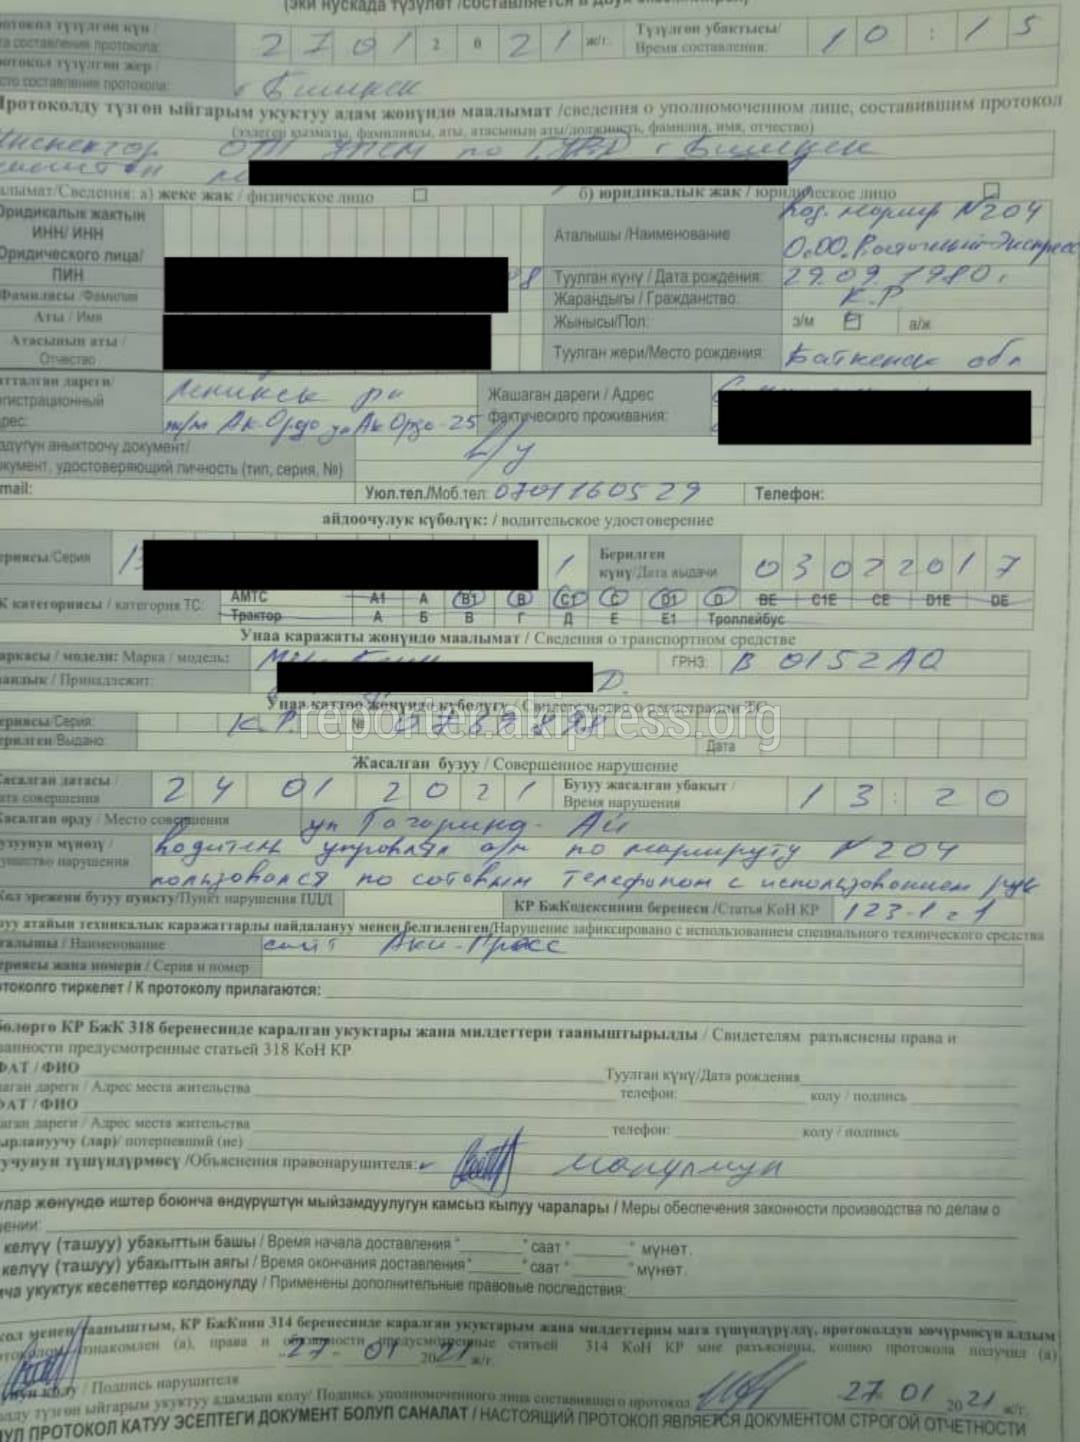 (эки нускада түзүлөт /составляется в двух экземплярах)
протокол түзүлгөн күн / 27012021 ж/г. Түзүлгөн убактысы/ 10:15
составления протокола: Время составления:
протокол түзүлгөн жер / г Бишкек
место составления протокола:
Протоколду түзгөн ыйгарым укуктуу адам жөнүндө маалымат /сведения о уполномоченном лице, составившим протокол
(ээлеген кызматы, фамилиясы, аты, атасынын аты/должность, фамилия, имя, отчество)
Инспектор по г Бишкек
Сведения: а) жеке жак / физическое лицо б) юридикалык жак / юридическое лицо
Юридикалык жактын ИНН/ ИНН
Юридического лица/ ПИН
Аталышы /Наименование Вод. маршр N204
О.О.О. Восточный-Экспресс
Туулган күнү / Дата рождения: 29.09.1980г
Фамилиясы /Фамилия Жарандыгы / Гражданство: К.Р
Аты / Имя Жынысы/Пол: э/м а/ж
Атасынын аты / Отчество Туулган жери/Место рождения: Баткенск обл
Катталган дареги/ Ленинск рн Жашаган дареги / Адрес
фактического проживания:
ж/м Ак-Ордо ул Ак Ордо-25
документ, удостоверяющий личность (тип, серия, №)
mail: Уюл.тел./Моб.тел: 0701160529 Телефон:
айдоочулук күбөлүк: / водительское удостоверение
Сериясы/Серия 1 Берилген
күнү/Дата выдачи 03022017
ТК категориясы / категория ТС: АМТС А1 А В1 В С1 С D1 D ВЕ С1Е СЕ D1Е DE
Трактор А Б В Г Д Е Е1 Троллейбус
Унаа каражаты жөнүндө маалымат / Сведения о транспортном средстве
Маркасы / модели: Марка / модель: ГРНЗ: В 0152AQ
Принадлежит:
Унаа каттоо жөнүндө күбөлүгү / Свидетельство о регистрации ТС
Сериясы/Серия: К.Р. №
Берилген Выдано: Дата
reporter.akipress.org
Жасалган бузуу / Совершенное нарушение
Жасалган датасы / 24 01 2021 Бузуу жасалган убакыт / 13:20
Дата совершения Время нарушения
Жасалган орду / Место совершения ул Гагарина- Ай
Бузуунун мүнөзү / водитель управлял а/м по маршруту N204
существо нарушения пользовался по сотовым телефоном с использованием рук
Жол эрежени бузуу пункту/Пункт нарушения ПДД КР БжКодексинин беренеси /Статья КоН КР 123-1 ч 1
атайын техникалык каражаттарды пайдалануу менен белгиленген/Нарушение зафиксировано с использованием специального технического средства
Аталышы / Наименование сайт Аки-Пресс
Сериясы жана номери / Серия и номер
Протоколго тиркелет / К протоколу прилагаются:
КР БжК 318 беренесинде каралган укуктары жана милдеттери тааныштырылды / Свидетелям разъяснены права и
обязанности предусмотренные статьей 318 КоН КР
ФАТ / ФИО Туулган күнү/Дата рождения
Жашаган дареги / Адрес места жительства телефон: колу / подпись
ФАТ / ФИО
Жашаган дареги / Адрес места жительства телефон: колу / подпись
Жабырлануучу (лар)/ потерпевший (не)
түшүндүрмөсү /Объяснения правонарушителя: макулмун
жөнүндө иштер боюнча өндүрүштүн мыйзамдуулугун камсыз кылуу чаралары / Меры обеспечения законности производства по делам о
келүү (ташуу) убакыттын башы / Время начала доставления " " саат " " мүнөт.
келүү (ташуу) убакыттын аягы / Время окончания доставления " " саат " " мүнөт.
укуктук кесепеттер колдонулду / Применены дополнительные правовые последствия:
менен тааныштым, КР БжКнин 314 беренесинде каралган укуктарым жана милдеттерим мага түшүндүрүлдү, протоколдун көчүрмөсүн алдым
ознакомлен (а), права и обязанности предусмотренные статьей 314 КоН КР мне разъяснены, копию протокола получил (а)
27 01 2021 ж/г.
колу / Подпись нарушителя
түзгөн ыйгарым укуктуу адамдын колу/ Подпись уполномоченного лица составившего протокол 27 01 2021 ж/г.
БУЛ ПРОТОКОЛ КАТУУ ЭСЕПТЕГИ ДОКУМЕНТ БОЛУП САНАЛАТ / НАСТОЯЩИЙ ПРОТОКОЛ ЯВЛЯЕТСЯ ДОКУМЕНТОМ СТРОГОЙ ОТЧЕТНОСТИ